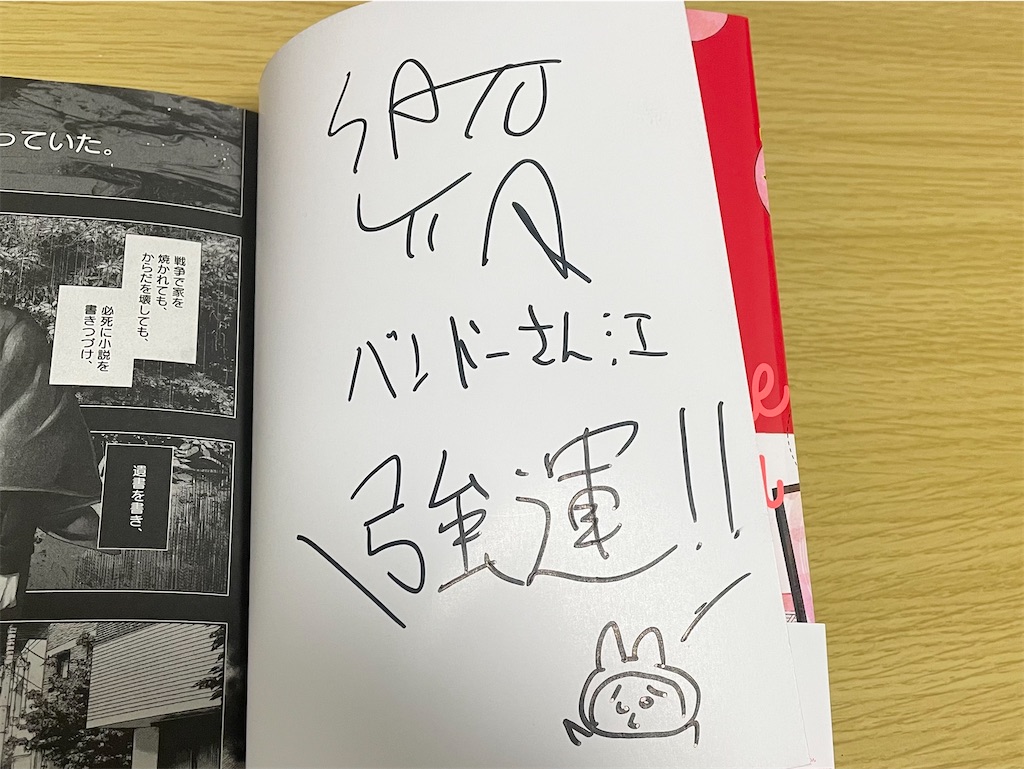 っていた。
戦争で家を
焼かれても、
からだを壊しても、
必死に小説を
書きつづけ、
遺書を書き、
SATO
バンドーさん江
強運!!